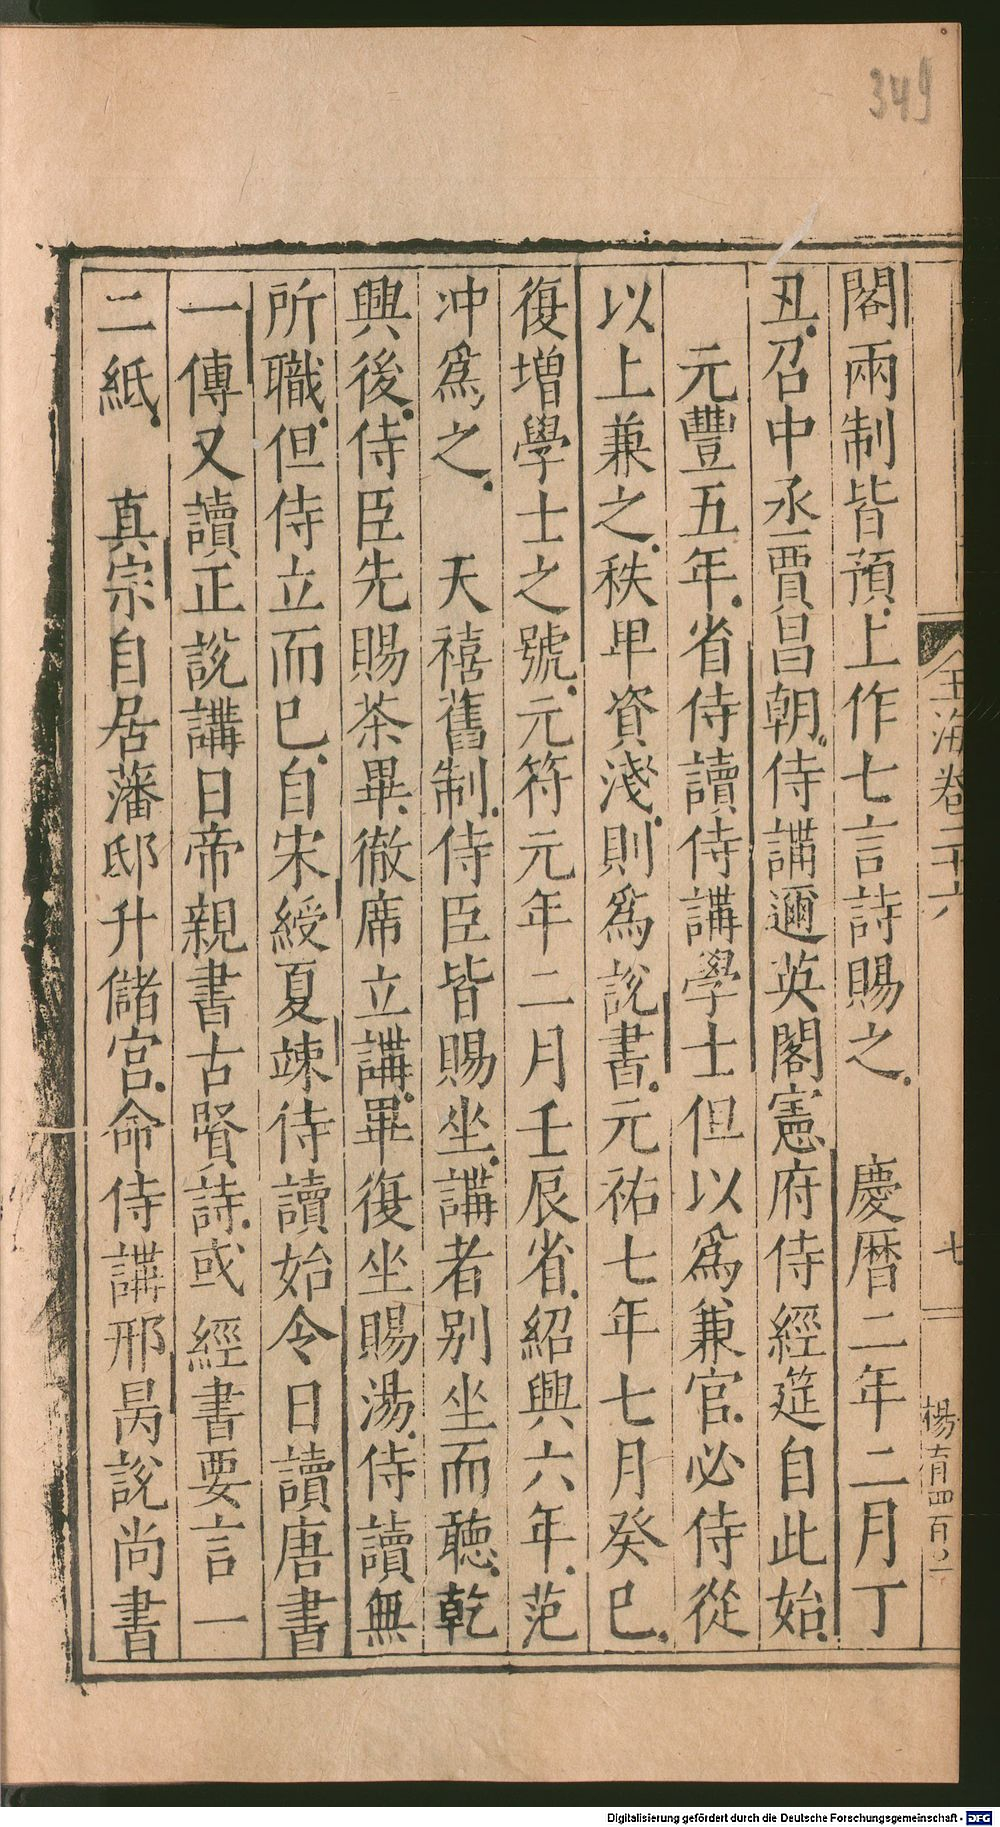 349
閣兩制皆預上作七言詩賜之　慶曆二年二月丁
丑召中丞賈昌朝侍講邇英閣憲府侍經筵自此始
元豐五年省侍讀侍講學士但以爲兼官必侍從
以上兼之秩卑資淺則爲說書元祐七年七月癸巳
復增學士之號元符元年二月壬辰省紹興六年范
冲爲之　天禧舊制侍臣皆賜坐講者別坐而聽乾
興後侍臣先賜茶畢徹席立講畢復坐賜湯侍讀無
所職但侍立而已自宋綬夏竦侍讀始令日讀唐書
一傳又讀正說講日帝親書古賢詩或經書要言一
二紙　真宗自居藩邸升儲宮命侍講邢昺說尚書
玉海卷二十六
七
楊 四百
Digitalisierung gefördert durch die Deutsche Forschungsgemeinschaft - DFG